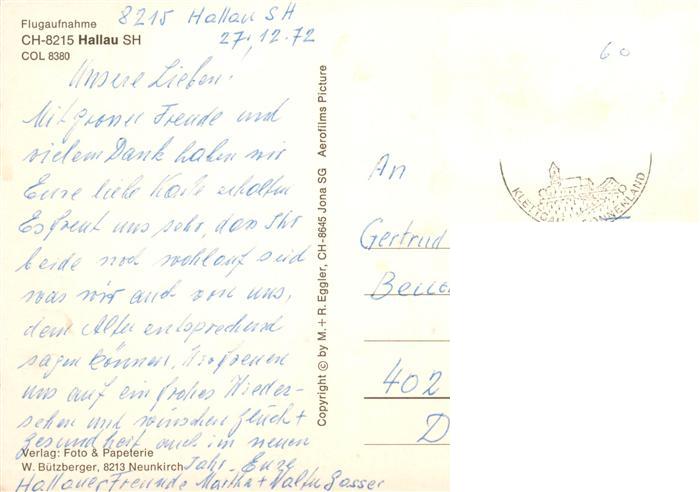 Flugaufnahme
CH-8215 Hallau SH
COL 8380
8215 Hallau SH
27.12.72
Unsere Lieben!
Mit grosser Freude und
vielem Dank haben wir
Eure liebe Karte erhalten
Es freut uns sehr, dass Ihr
beide noch wohlauf seid
was wir auch von uns,
dem Alter entsprechend
sagen können. Wir freuen
uns auf ein frohes Wieder-
sehen und wünschen Glück +
Gesundheit auch im neuen
Jahr. Eure
Hallauer Freunde Martha + Walter Gasser
Verlag: Foto & Papeterie
W. Bützberger, 8213 Neunkirch
Copyright © by M. + R. Eggler, CH-8645 Jona SG Aerofilms Picture
60
KLETTGAU
An
Gertrud
402
D